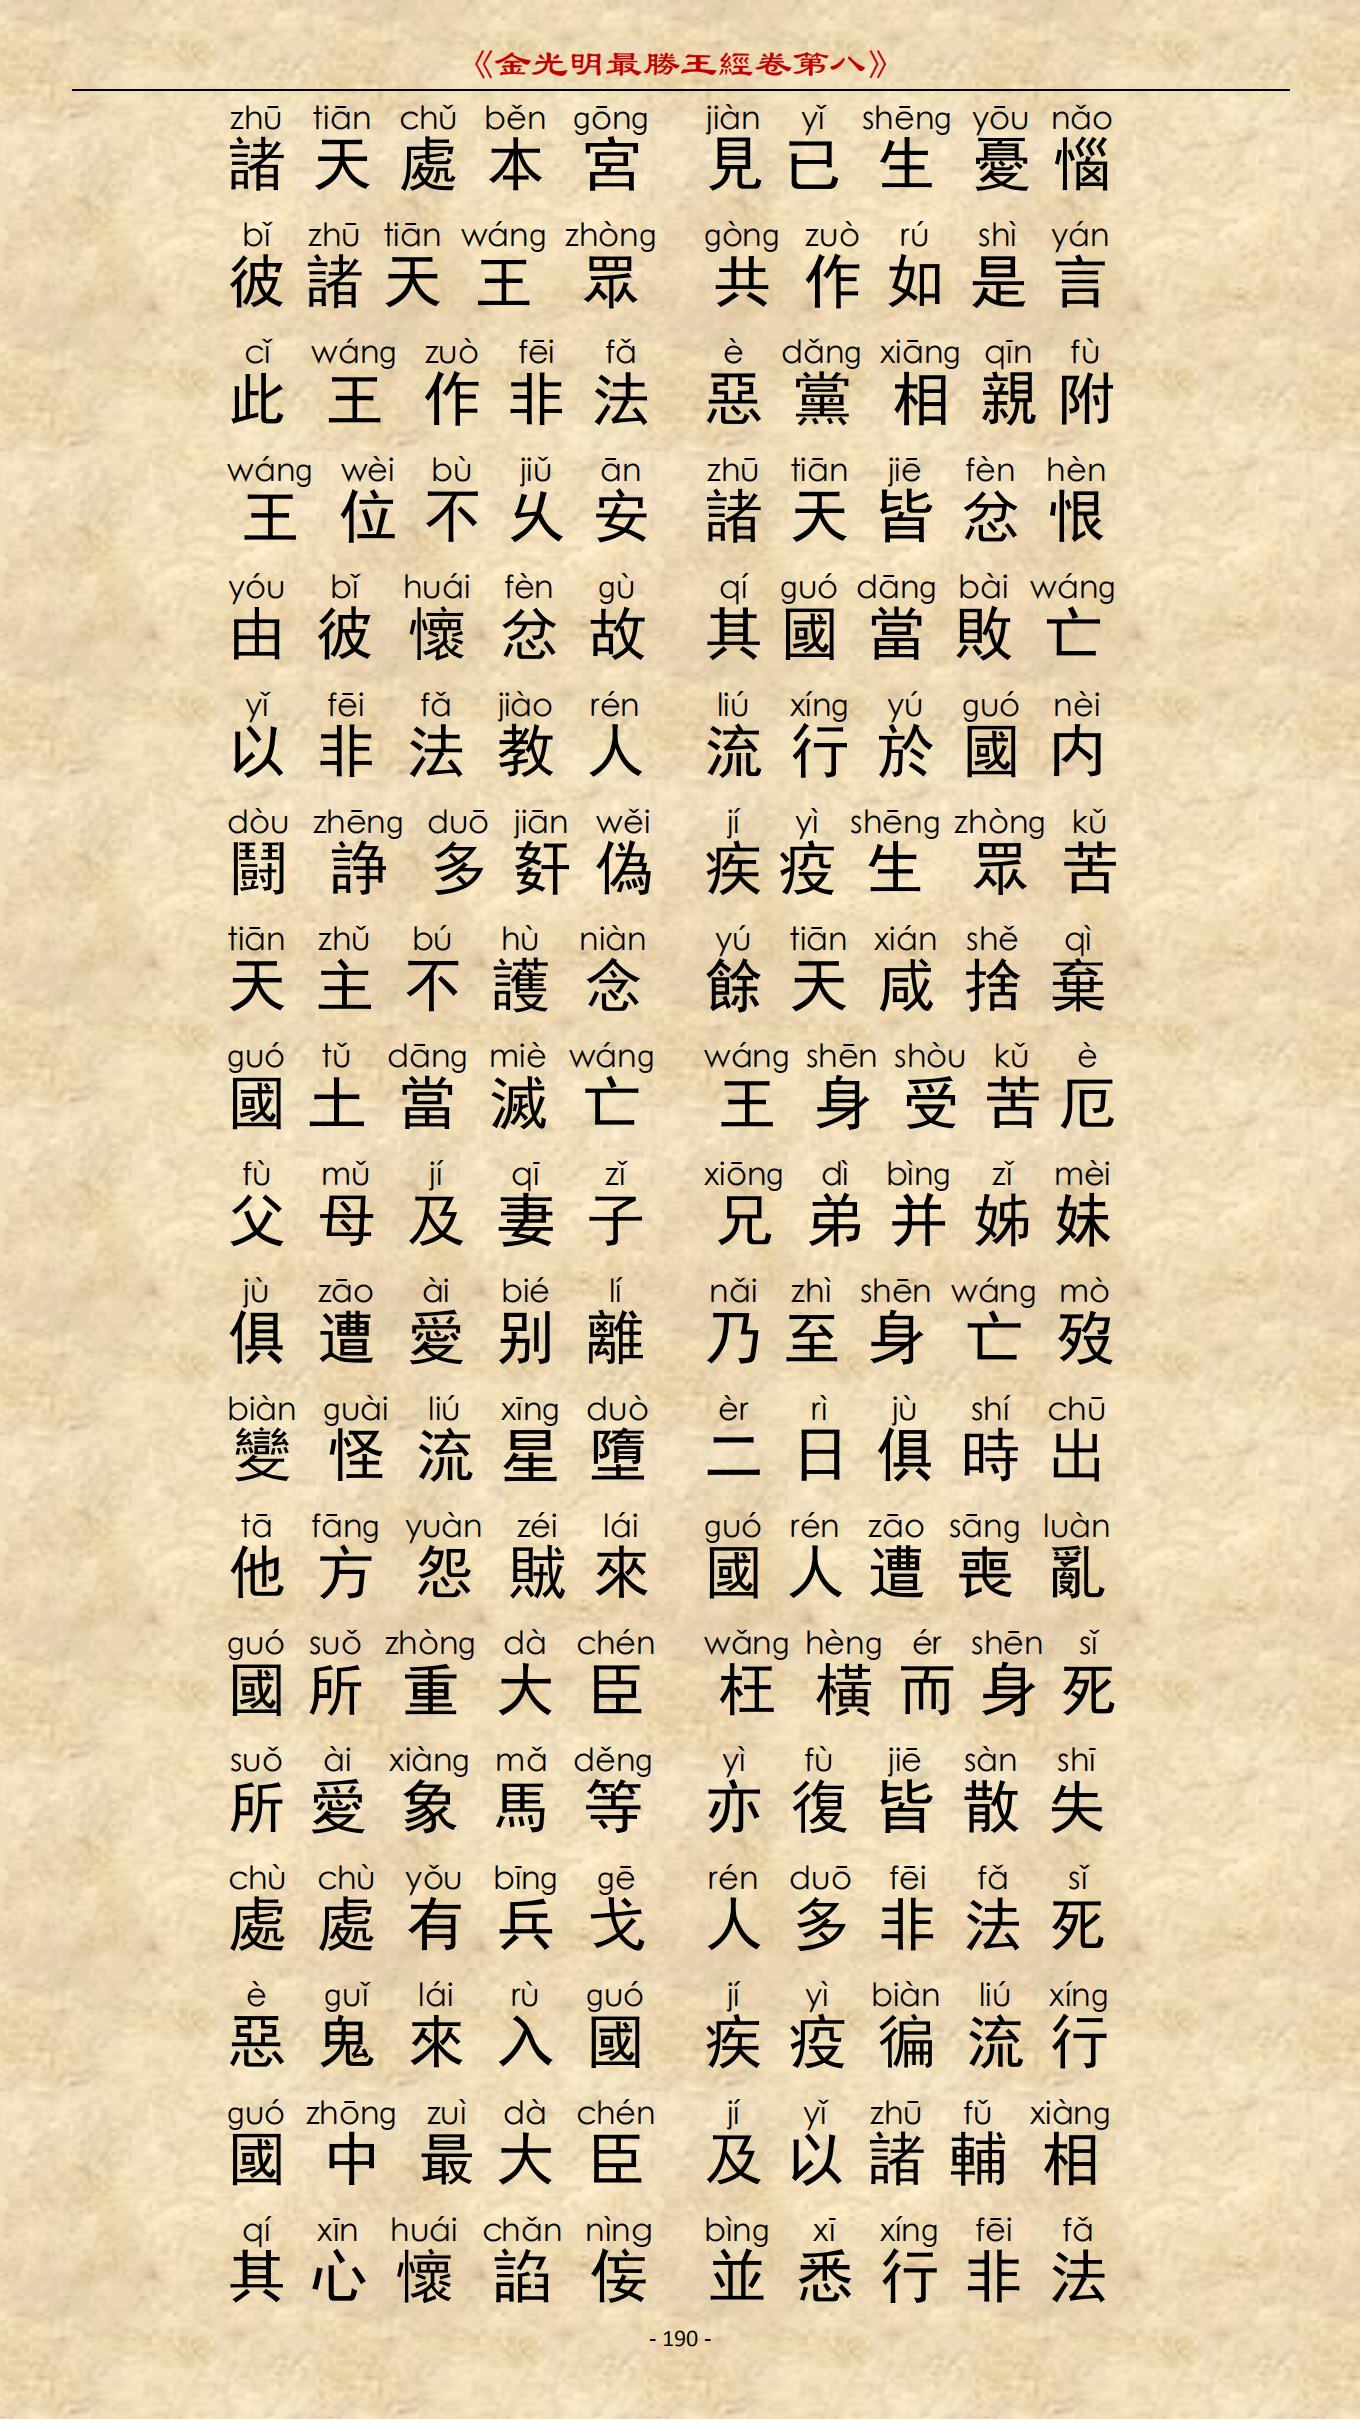 《金光明最勝王經卷第八》
zhū tiān chǔ běn gōng jiàn yǐ shēng yōu nǎo
諸天處本宮 見已生憂惱
bǐ zhū tiān wáng zhòng gòng zuò rú shì yán
彼諸天王眾 共作如是言
cǐ wáng zuò fēi fǎ è dǎng xiāng qīn fù
此王作非法 惡黨相親附
wáng wèi bù jiǔ ān zhū tiān jiē fèn hèn
王位不乆安 諸天皆忿恨
yóu bǐ huái fèn gù qí guó dāng bài wáng
由彼懷忿故 其國當敗亡
yǐ fēi fǎ jiào rén liú xíng yú guó nèi
以非法教人 流行於國内
dòu zhēng duō jiān wěi jí yì shēng zhòng kǔ
鬪諍多姧偽 疾疫生眾苦
tiān zhǔ bú hù niàn yú tiān xián shě qì
天主不護念 餘天咸捨棄
guó tǔ dāng miè wáng wáng shēn shòu kǔ è
國土當滅亡 王身受苦厄
fù mǔ jí qī zǐ xiōng dì bìng zǐ mèi
父母及妻子 兄弟并姊妹
jù zāo ài bié lí nǎi zhì shēn wáng mò
俱遭愛别離 乃至身亡歿
biàn guài liú xīng duò èr rì jù shí chū
變怪流星墮 二日俱時出
tā fāng yuàn zéi lái guó rén zāo sāng luàn
他方怨賊來 國人遭喪亂
guó suǒ zhòng dà chén wǎng hèng ér shēn sǐ
國所重大臣 枉橫而身死
suǒ ài xiàng mǎ děng yì fù jiē sàn shī
所愛象馬等 亦復皆散失
chù chù yǒu bīng gē rén duō fēi fǎ sǐ
處處有兵戈 人多非法死
è guǐ lái rù guó jí yì biàn liú xíng
惡鬼來入國 疾疫徧流行
guó zhōng zuì dà chén jí yǐ zhū fǔ xiàng
國中最大臣 及以諸輔相
qí xīn huái chǎn nìng bìng xī xíng fēi fǎ
其心懷諂侫 並悉行非法
- 190 -